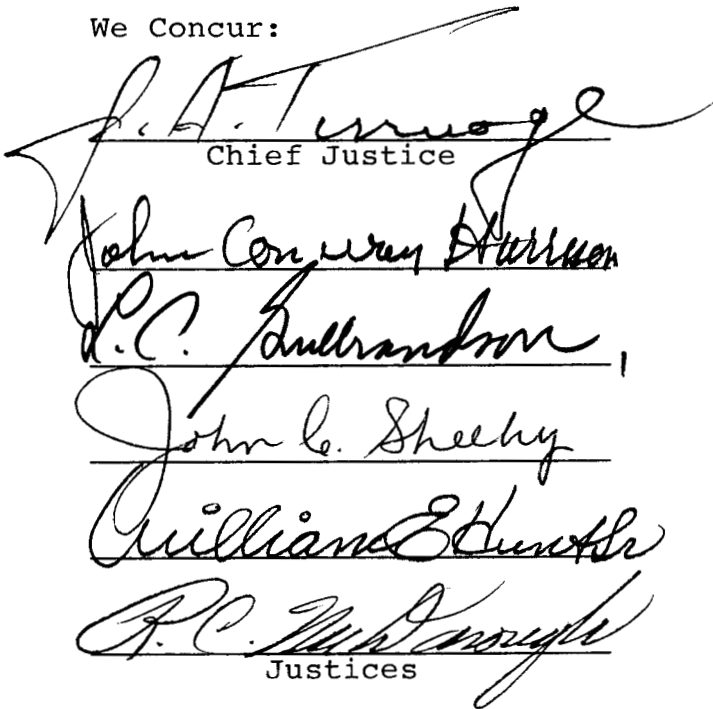 We Concur:
J. A. Turnage
Chief Justice
John Conway Harrison
L. C. Gulbrandson
John C. Sheehy
William E Hunt Sr
R. C. McDonough
Justices